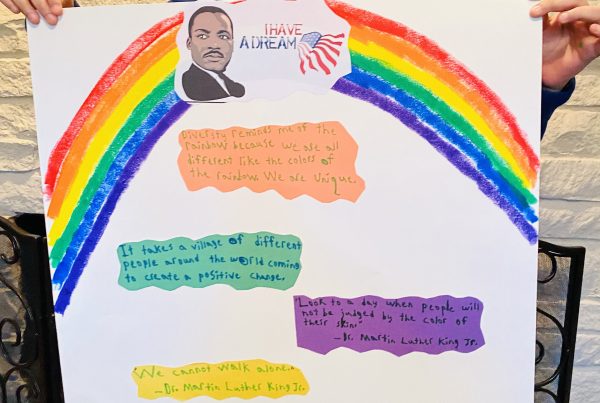 I HAVE
A DREAM
Diversity reminds me of the
rainbow because we are all
different like the colors of
the rainbow. We are Unique.
It takes a village of different
people around the world coming
to create a positive change.
"Look to a day when people will
not be judged by the color of
their skin."
-Dr. Martin Luther King Jr.
"We cannot walk alone."
-Dr. Martin Luther King Jr.